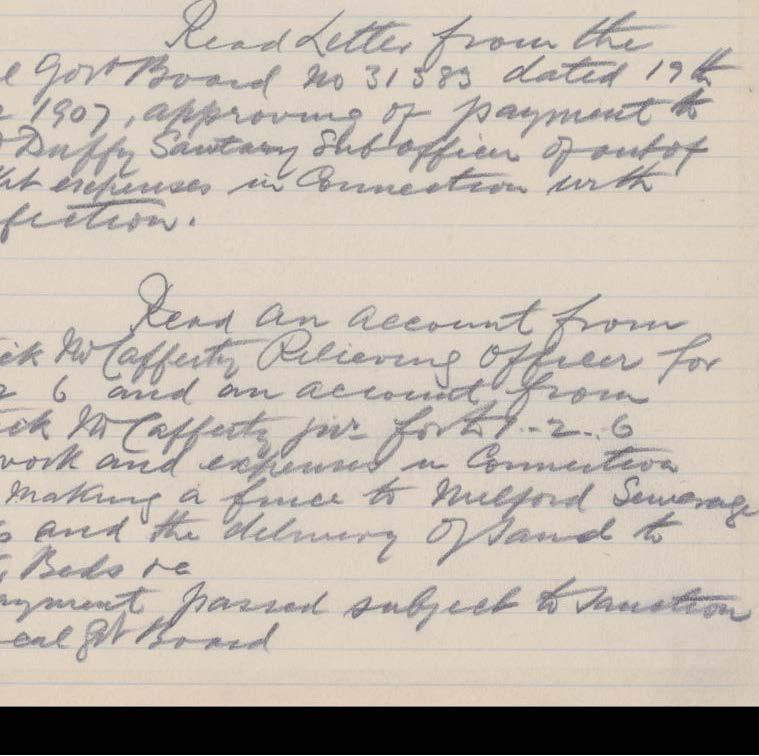 Read Letter from the
l Govt Board No 31383 dated 19th
1907, approving of payment to
Duffy Sanitary Sub officer of out of
ket expenses in Connection with
fection.
Read an account from
ick McCafferty Relieving Officer for
6 and an account from
ick McCafferty junr for 1-2-6
work and expenses in Connection
making a fence to Milford Sewerage
s and the delivery of sand to
Beds &c
ayment passed subject to Sanction
cal Govt Board